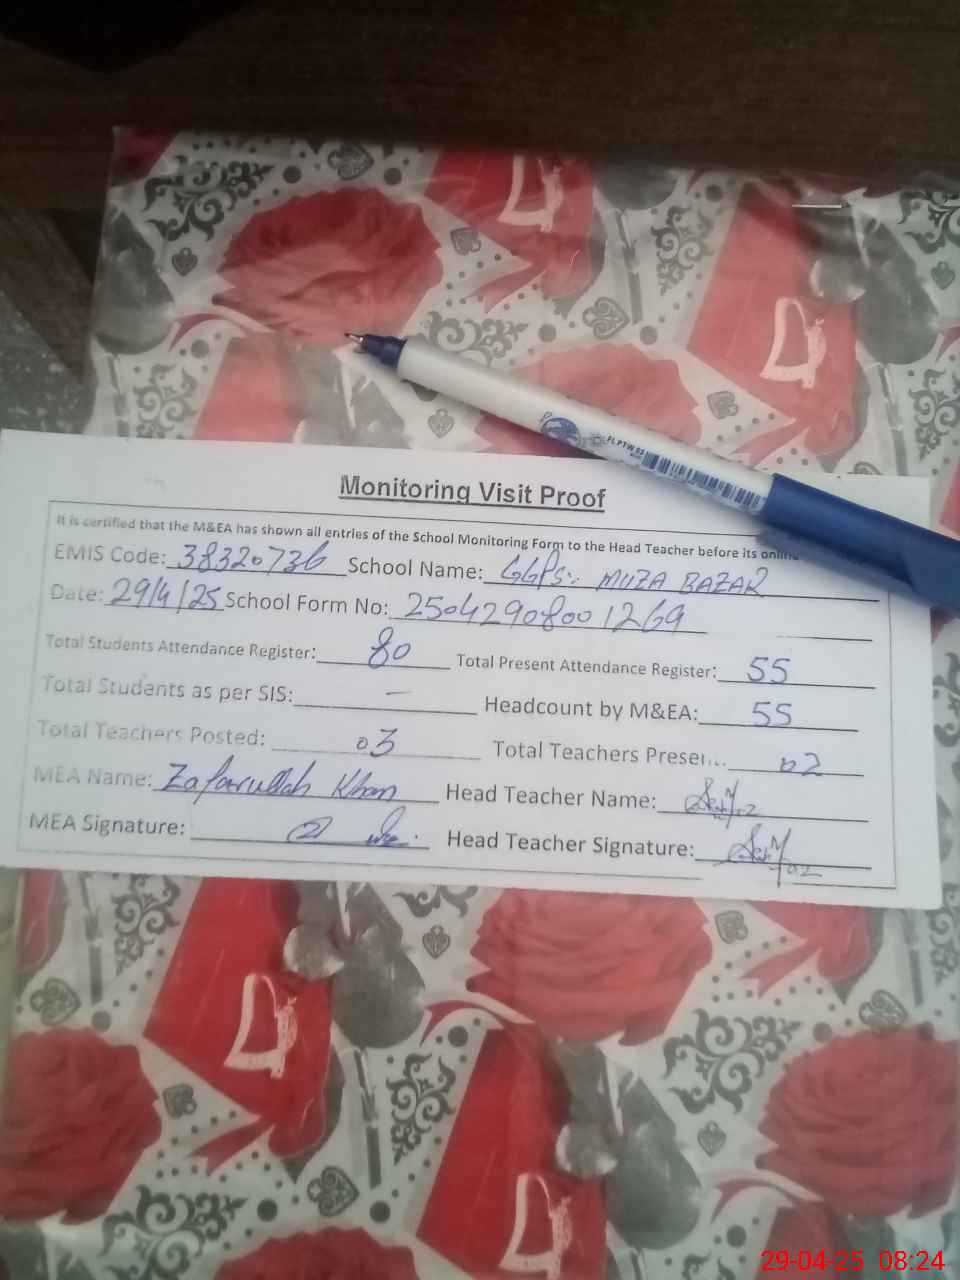 FLPTW53
Monitoring Visit Proof
It is certified that the M&EA has shown all entries of the School Monitoring Form to the Head Teacher before its online
EMIS Code: 38320736 School Name: GGPS:. MUZA BAZAR
Date: 29/4/25 School Form No: 25042908001269
Total Students Attendance Register: 80 Total Present Attendance Register: 55
Total Students as per SIS: — Headcount by M&EA: 55
Total Teachers Posted: 03 Total Teachers Present: 02
MEA Name: Zafarullah Khan Head Teacher Name:
MEA Signature: Head Teacher Signature:
29-04-25 08:24